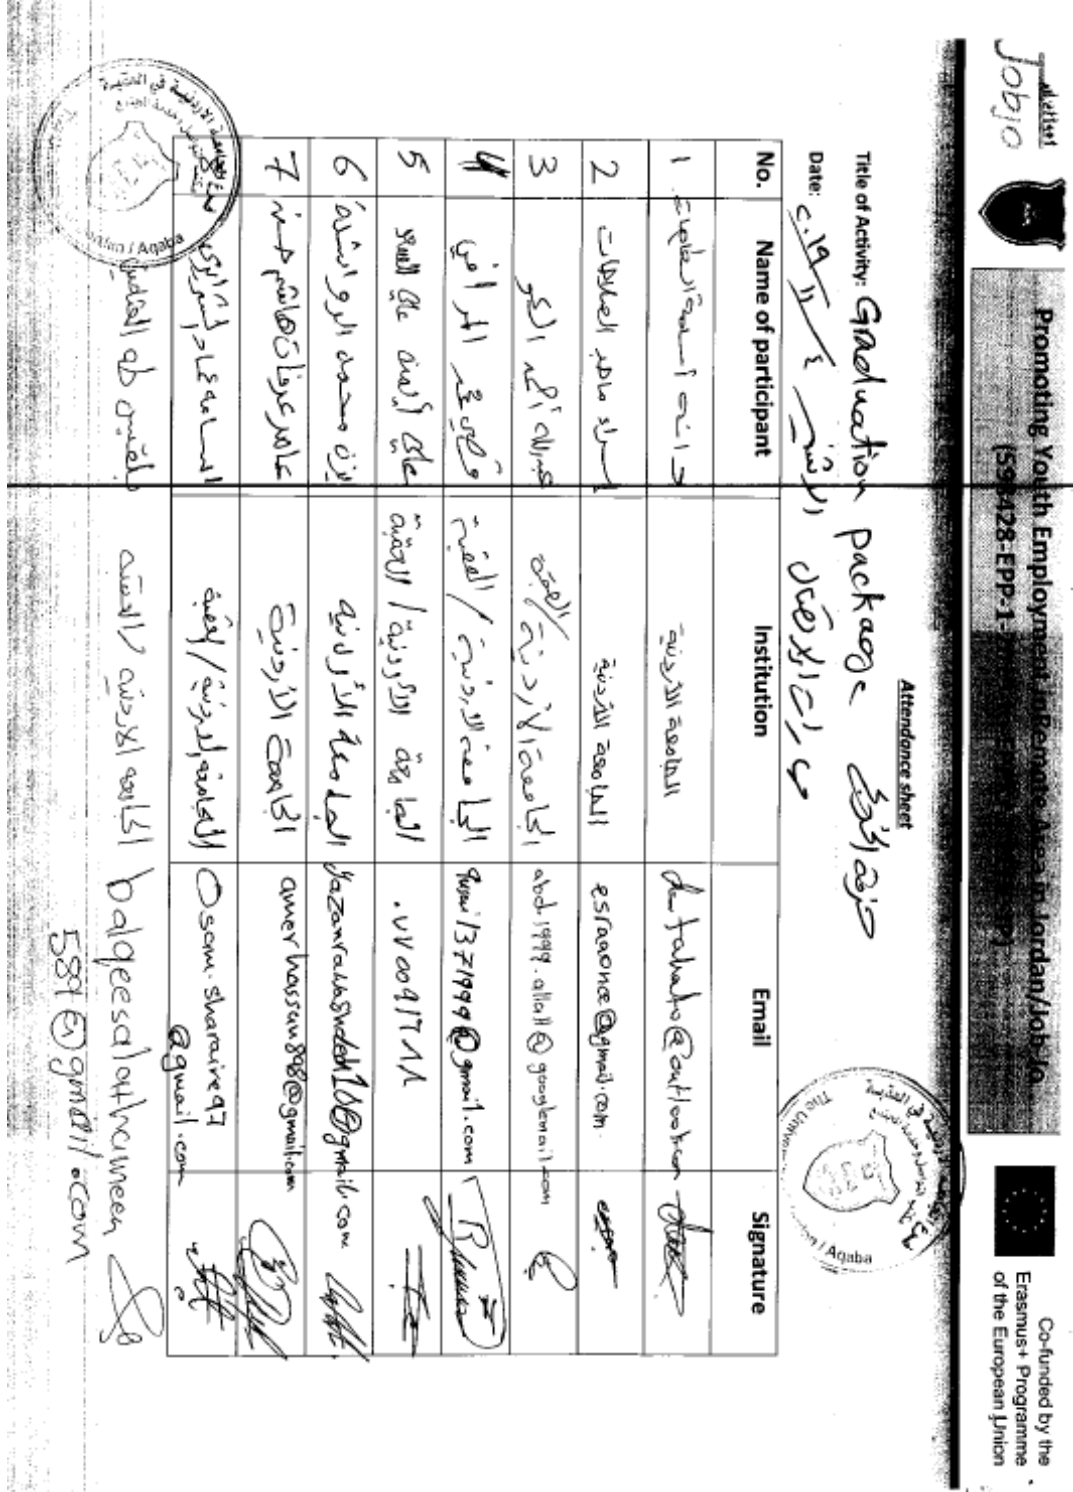 Jobjo
Promoting Youth Employment in Remote Area in Jordan/Job-Jo
Co-funded by the
Erasmus+ Programme
of the European Union
Attendance sheet
Title of Activity: Graduation package حزمة التخرج
Date: ٢٠١٩/١١/٤ الاثنين مهارات الاتصال
No. Name of participant Institution Email Signature
1 دانه أسامة الطاهات الجامعة الأردنية
2 اسراء ماهر العلاقات الجامعة الأردنية esraaonce@gmail.com
3 عبدالله أحمد الجامعة الأردنية/العقبة abd.1999.allah@googlemail.com
4 قصي محمد المرافي الجامعة الأردنية/العقبة qusai1371999@gmail.com
5 علي أيمن علي الجامعة الأردنية/العقبة
6 يزن ممدوح الرواشدة الجامعة الأردنية yazanrawashdeh10@gmail.com
7 عامر عرفات هاشم حسن الجامعة الأردنية amerhassan898@gmail.com
8 اسامة عماد الشرايري الجامعة الاردنية/العقبة Osam.sharaire97
@gmail.com
بلقيس طه العثامين الجامعة الاردنية/العقبة balqeesalothameen
589@gmail.com
Aqaba
Aqaba